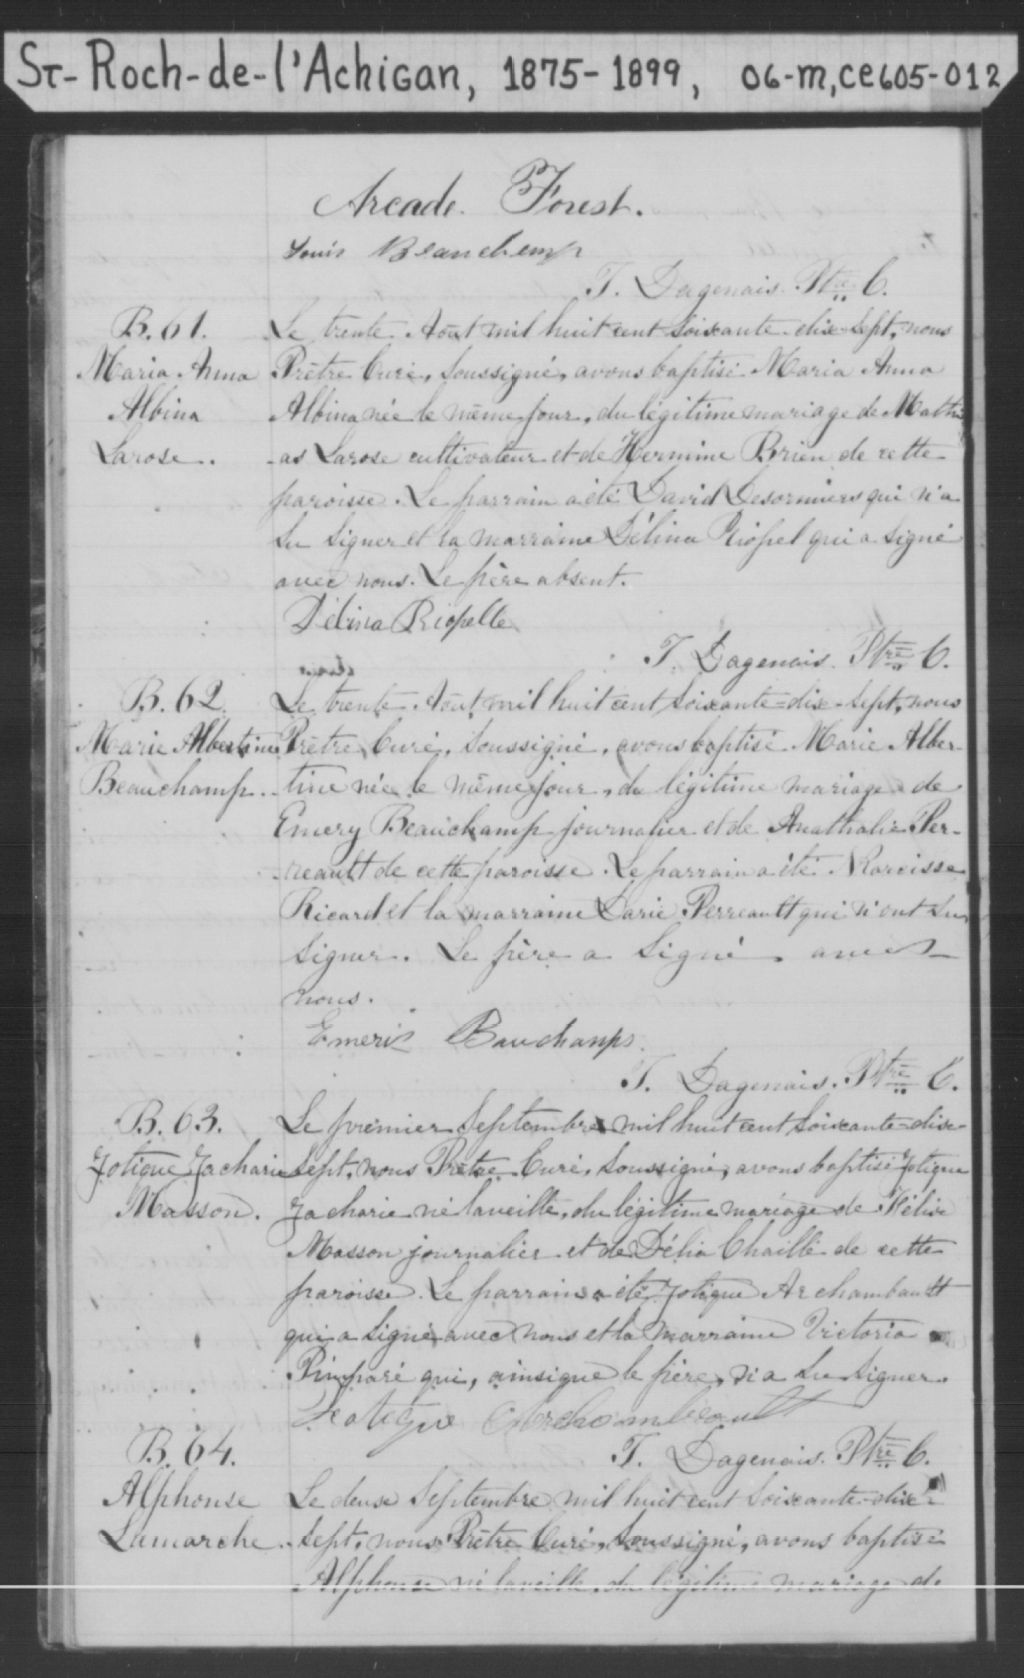 St-Roch-de-l'Achigan, 1875-1899, 06-M, CE605-012
Arcade Forest.
Louis Beauchemp
T. Dagenais Ptre C.
B. 61.
Maria Anna
Albina
Larose.
Le trente Août mil huit cent soixante-dix-sept, nous
Prêtre Curé, Soussigné, avons baptisé Maria Anna
Albina née le même jour, du légitime mariage de Mathi
-as Larose cultivateur et de Hermine Brien de cette
paroisse. Le parrain a été David Desormiers qui n'a
su signer et la marraine Délina Riopel qui a signé
avec nous. Le père absent.
Délina Riopelle
T. Dagenais Ptre C.
B. 62.
Marie Albertine
Beauchamp.
Le trente Août mil huit cent soixante-dix-sept, nous
Prêtre Curé, Soussigné, avons baptisé Marie Alber-
tine née le même jour, du légitime mariage de
Emery Beauchamp journalier et de Anathalie Per-
-reault de cette paroisse. Le parrain a été Narcisse
Ricard et la marraine Darie Perreault qui n'ont su
signer. Le père a signé avec
nous.
Emeri Bauchamps
T. Dagenais. Ptre C.
B. 63.
Zotique Zacharie
Masson.
Le premier Septembre mil huit cent soixante-dix-
sept, nous Prêtre Curé, Soussigné, avons baptisé Zotique
Zacharie né la veille, du légitime mariage de Félix
Masson journalier et de Délia Chaillé de cette
paroisse. Le parrain a été Zotique Archambault
qui a signé avec nous et la marraine Victoria
Pimparé qui, ainsi que le père, n'a su signer.
Archambeault
T. Dagenais. Ptre C.
B. 64.
Alphonse
Lamarche.
Le deux Septembre mil huit cent soixante-dix-
sept, nous Prêtre Curé, Soussigné, avons baptisé
Alphonse né la veille, du légitime mariage de